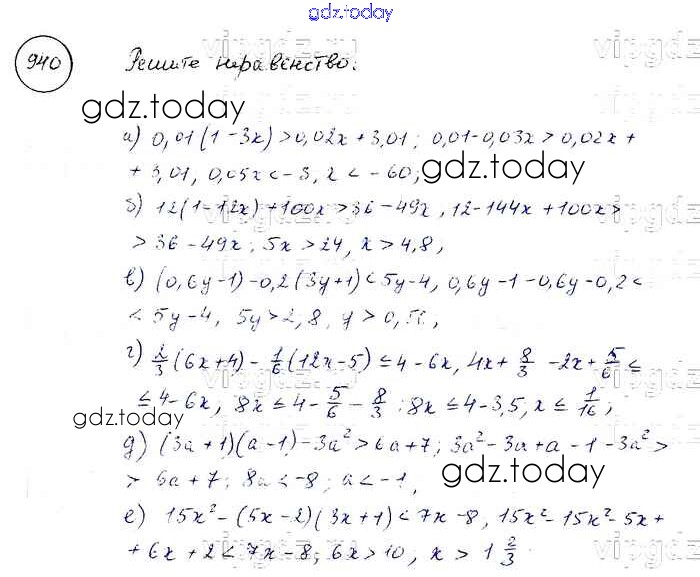 gdz.today
940 Решите неравенство:
gdz.today
а) 0,01(1-3x)>0,02x+3,01; 0,01-0,03x>0,02x+
gdz.today
+3,01, 0,05x<-3, x<-60;
б) 12(1-12x)+100x>36-49x, 12-144x+100x>
>36-49x; 5x>24, x>4,8,
в) (0,6y-1)-0,2(3y+1)<5y-4, 0,6y-1-0,6y-0,2<
<5y-4, 5y>2,8, y>0,56;
г) 2/3(6x+4)-1/6(12x-5)≤4-6x, 4x+8/3-2x+5/6≤
≤4-6x, 8x≤4-5/6-8/3; 8x≤4-3,5, x≤1/16;
gdz.today
д) (3a+1)(a-1)-3a²>6a+7; 3a²-3a+a-1-3a²>
gdz.today
>6a+7; 8a<-8; a<-1,
е) 15x²-(5x-2)(3x+1)<7x-8, 15x²-15x²-5x+
+6x+2<7x-8; 6x>10, x>1 2/3